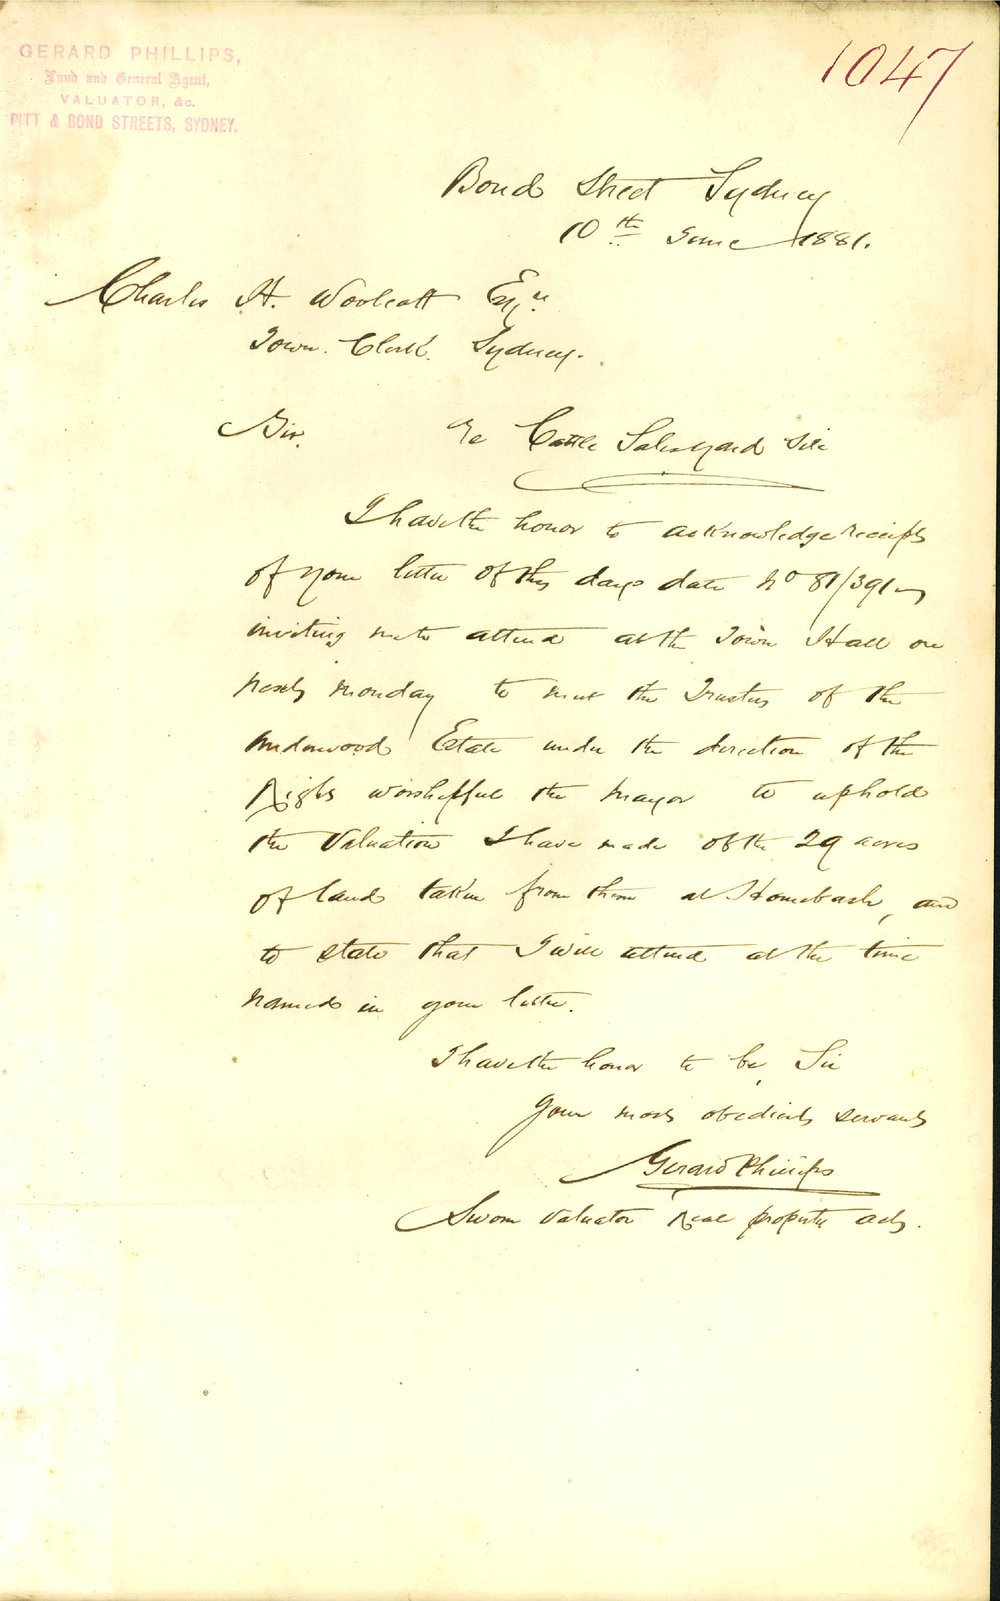 GERARD PHILLIPS,
Land and General Agent,
VALUATOR, &c.
PITT & BOND STREETS, SYDNEY.
1047
Bond Street Sydney
10th June 1881.
Charles H. Woolcott Esqre
Town Clerk. Sydney.
Sir. Re Cattle Saleyard Site
I have the honor to acknowledge receipt
of your letter of this days date No 81/391
inviting me to attend at the Town Hall on
next Monday to meet the Trustees of the
Underwood Estate under the direction of the
Right Worshipful the Mayor to uphold
the Valuation I have made of the 29 acres
of land taken from them at Homebush, and
to state that I will attend at the time
named in your letter.
I have the honor to be, Sir
Your most obedient servant
Gerard Phillips
Sworn Valuator Real property act.